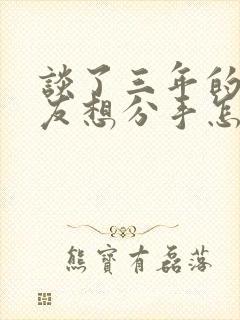 談了三年的
友想分手怎
熊寶有磊落